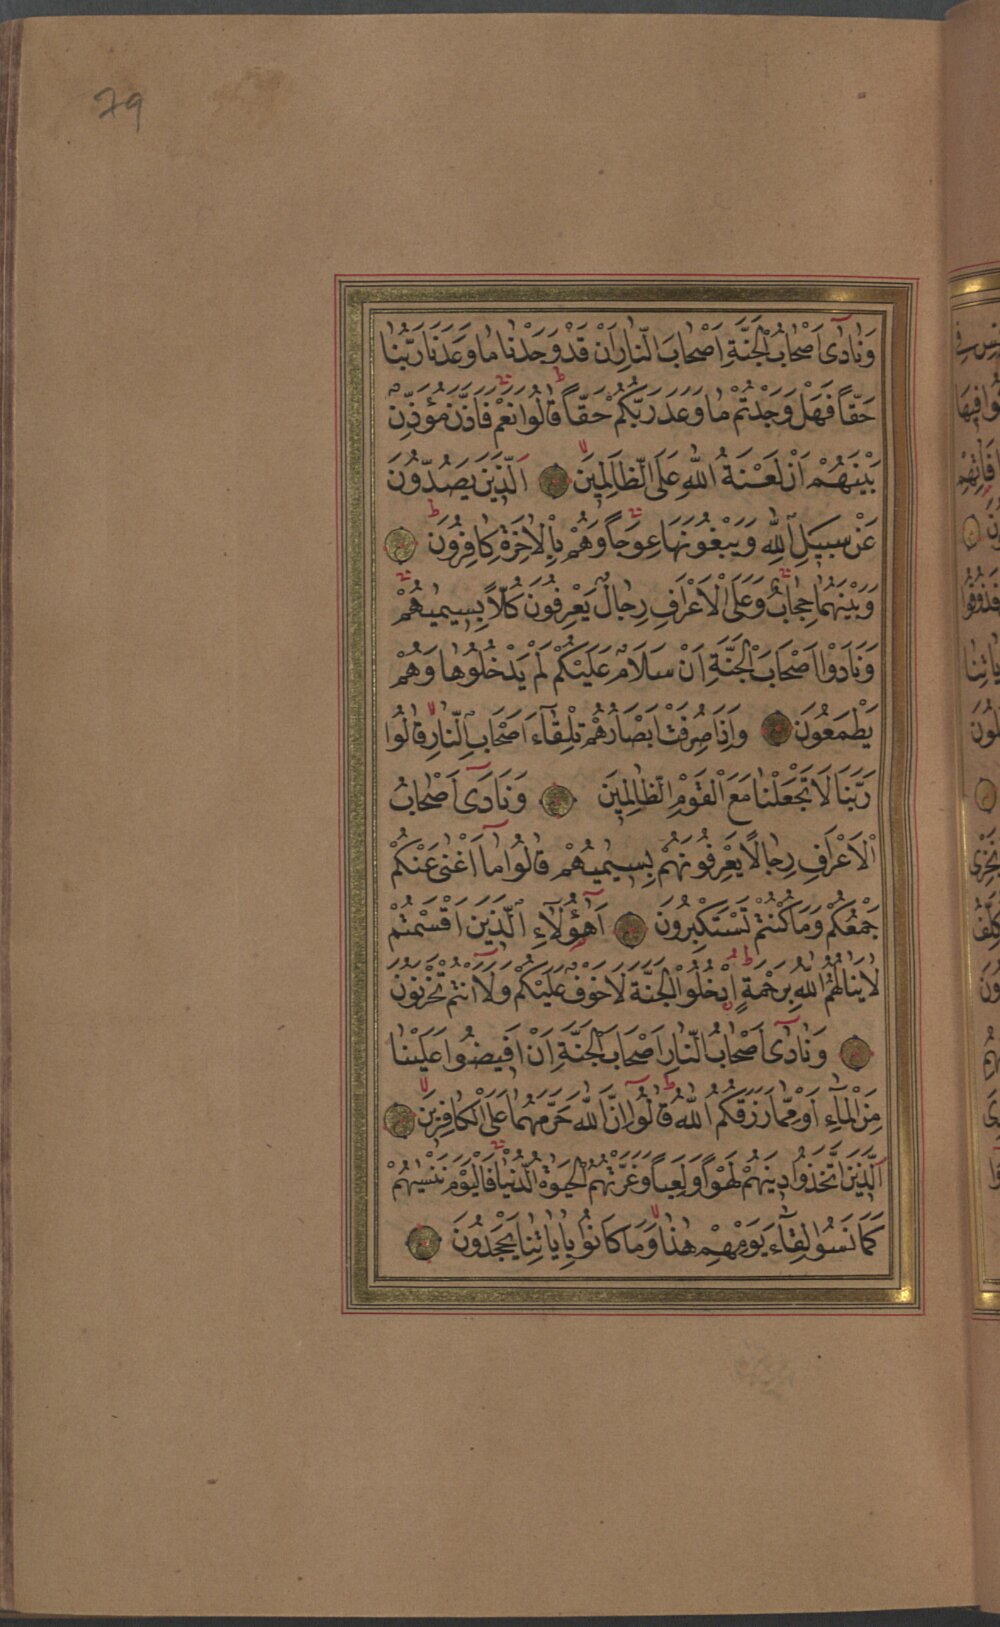 79
وَنَادٰٓى اَصْحَابُ الْجَنَّةِ اَصْحَابَ النَّارِ اَنْ قَدْ وَجَدْنَا مَا وَعَدَنَا رَبُّنَا
حَقًّا فَهَلْ وَجَدْتُمْ مَا وَعَدَ رَبُّكُمْ حَقًّا قَالُوا نَعَمْ فَاَذَّنَ مُؤَذِّنٌ
بَيْنَهُمْ اَنْ لَعْنَةُ اللّٰهِ عَلَى الظَّالِمِينَ اَلَّذِينَ يَصُدُّونَ
عَنْ سَبِيلِ اللّٰهِ وَيَبْغُونَهَا عِوَجًا وَهُمْ بِالْاٰخِرَةِ كَافِرُونَ
وَبَيْنَهُمَا حِجَابٌ وَعَلَى الْاَعْرَافِ رِجَالٌ يَعْرِفُونَ كُلًّا بِسِيمٰيهُمْ
وَنَادَوْا اَصْحَابَ الْجَنَّةِ اَنْ سَلَامٌ عَلَيْكُمْ لَمْ يَدْخُلُوهَا وَهُمْ
يَطْمَعُونَ وَاِذَا صُرِفَتْ اَبْصَارُهُمْ تِلْقَٓاءَ اَصْحَابِ النَّارِ قَالُوا
رَبَّنَا لَا تَجْعَلْنَا مَعَ الْقَوْمِ الظَّالِمِينَ وَنَادٰٓى اَصْحَابُ
الْاَعْرَافِ رِجَالًا يَعْرِفُونَهُمْ بِسِيمٰيهُمْ قَالُوا مَٓا اَغْنٰى عَنْكُمْ
جَمْعُكُمْ وَمَا كُنْتُمْ تَسْتَكْبِرُونَ اَهٰٓؤُلَٓاءِ الَّذِينَ اَقْسَمْتُمْ
لَا يَنَالُهُمُ اللّٰهُ بِرَحْمَةٍ اُدْخُلُوا الْجَنَّةَ لَا خَوْفٌ عَلَيْكُمْ وَلَٓا اَنْتُمْ تَحْزَنُونَ
وَنَادٰٓى اَصْحَابُ النَّارِ اَصْحَابَ الْجَنَّةِ اَنْ اَفِيضُوا عَلَيْنَا
مِنَ الْمَٓاءِ اَوْ مِمَّا رَزَقَكُمُ اللّٰهُ قَالُٓوا اِنَّ اللّٰهَ حَرَّمَهُمَا عَلَى الْكَافِرِينَ
اَلَّذِينَ اتَّخَذُوا دِينَهُمْ لَهْوًا وَلَعِبًا وَغَرَّتْهُمُ الْحَيٰوةُ الدُّنْيَا فَالْيَوْمَ نَنْسٰيهُمْ
كَمَا نَسُوا لِقَٓاءَ يَوْمِهِمْ هٰذَا وَمَا كَانُوا بِاٰيَاتِنَا يَجْحَدُونَ